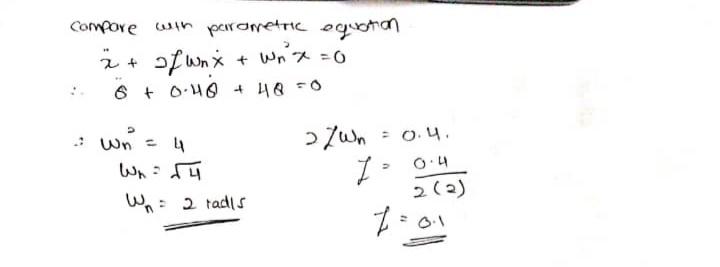 Compare with parametric equation
ẍ + 2ζωnẋ + ωn²x = 0
∴ θ̈ + 0.4θ̇ + 4θ = 0
∴ ωn² = 4
ωn = √4
ωn = 2 rad/s
2ζωn = 0.4.
ζ = 0.4 / 2(2)
ζ = 0.1